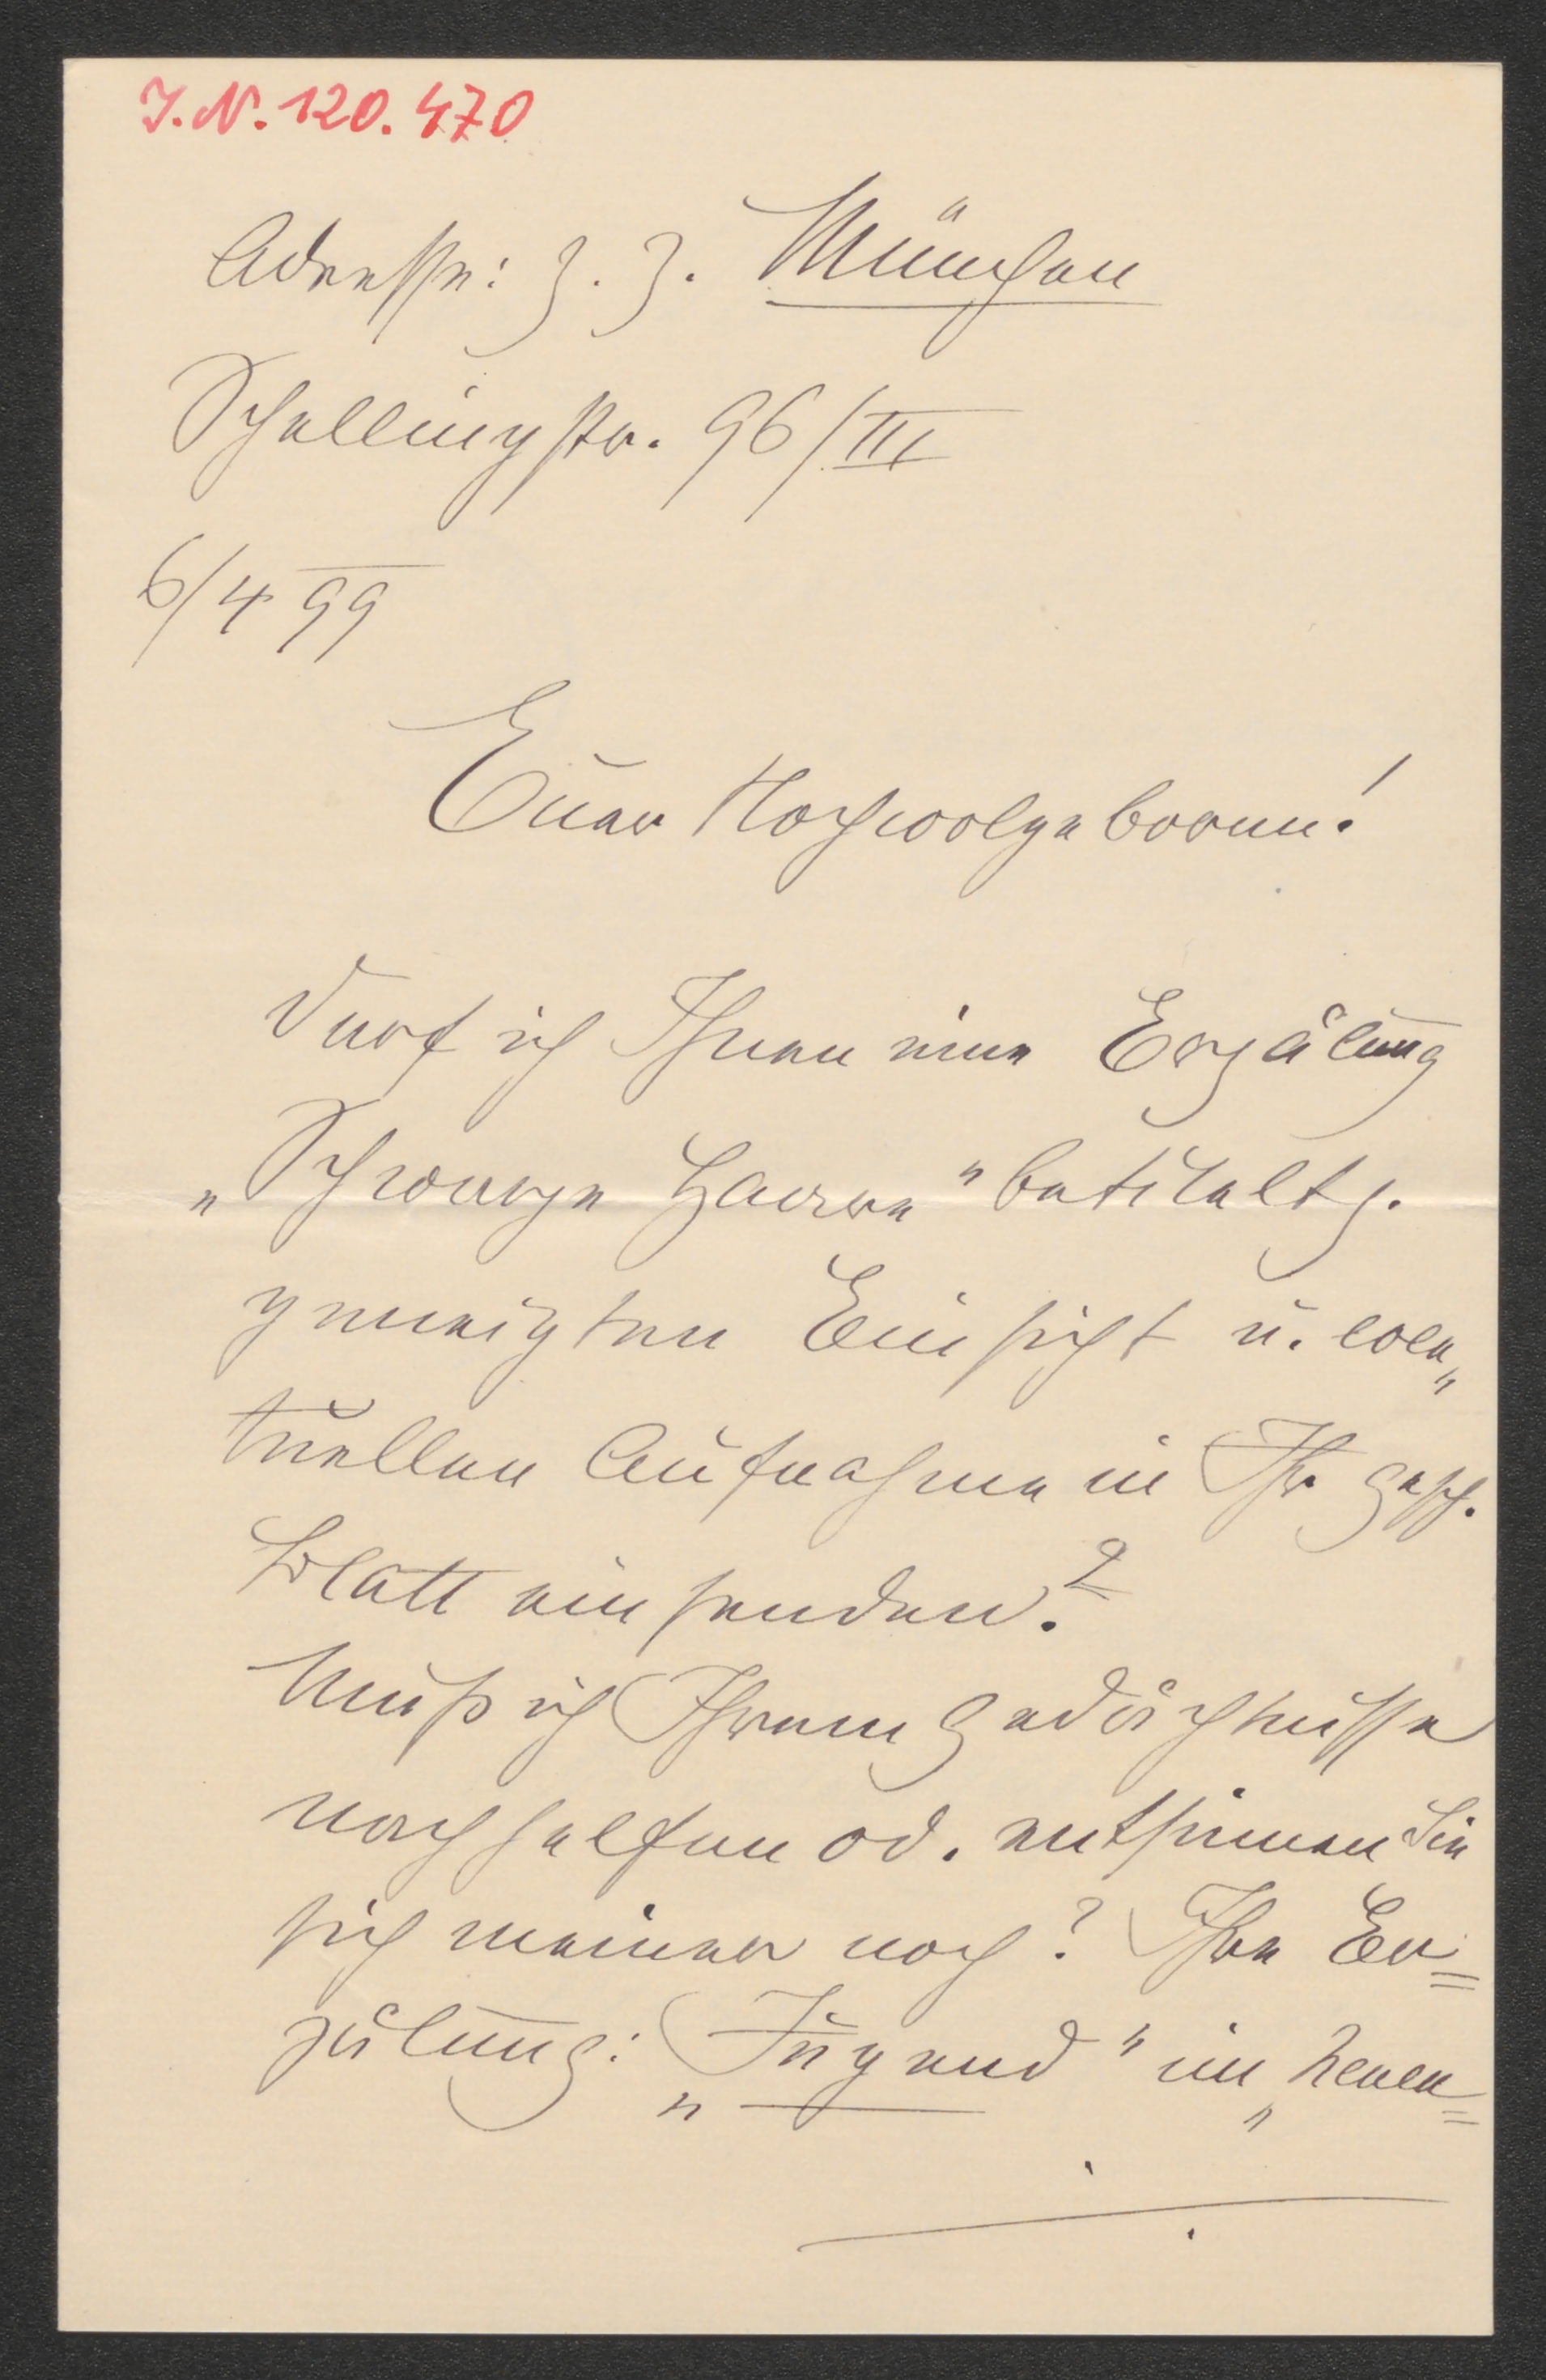 J. N. 120.470
Adresse: z. Z. München
Schellingstr. 96/III
6/4 99
Euer Hochwolgeboren!
Darf ich Ihnen eine Erzälung
„Schwarze Haare“ betitelt z.
geneigten Einsicht u. even„
tuellen Aufnahme in Ihr gesch.
Blatt einsenden?
Muß ich Ihrem Gedächtnisse
nachhelfen od. entsinnen Sie
sich meiner noch? Ihre Er=
zälung: „Jugend“ im „Neuen=